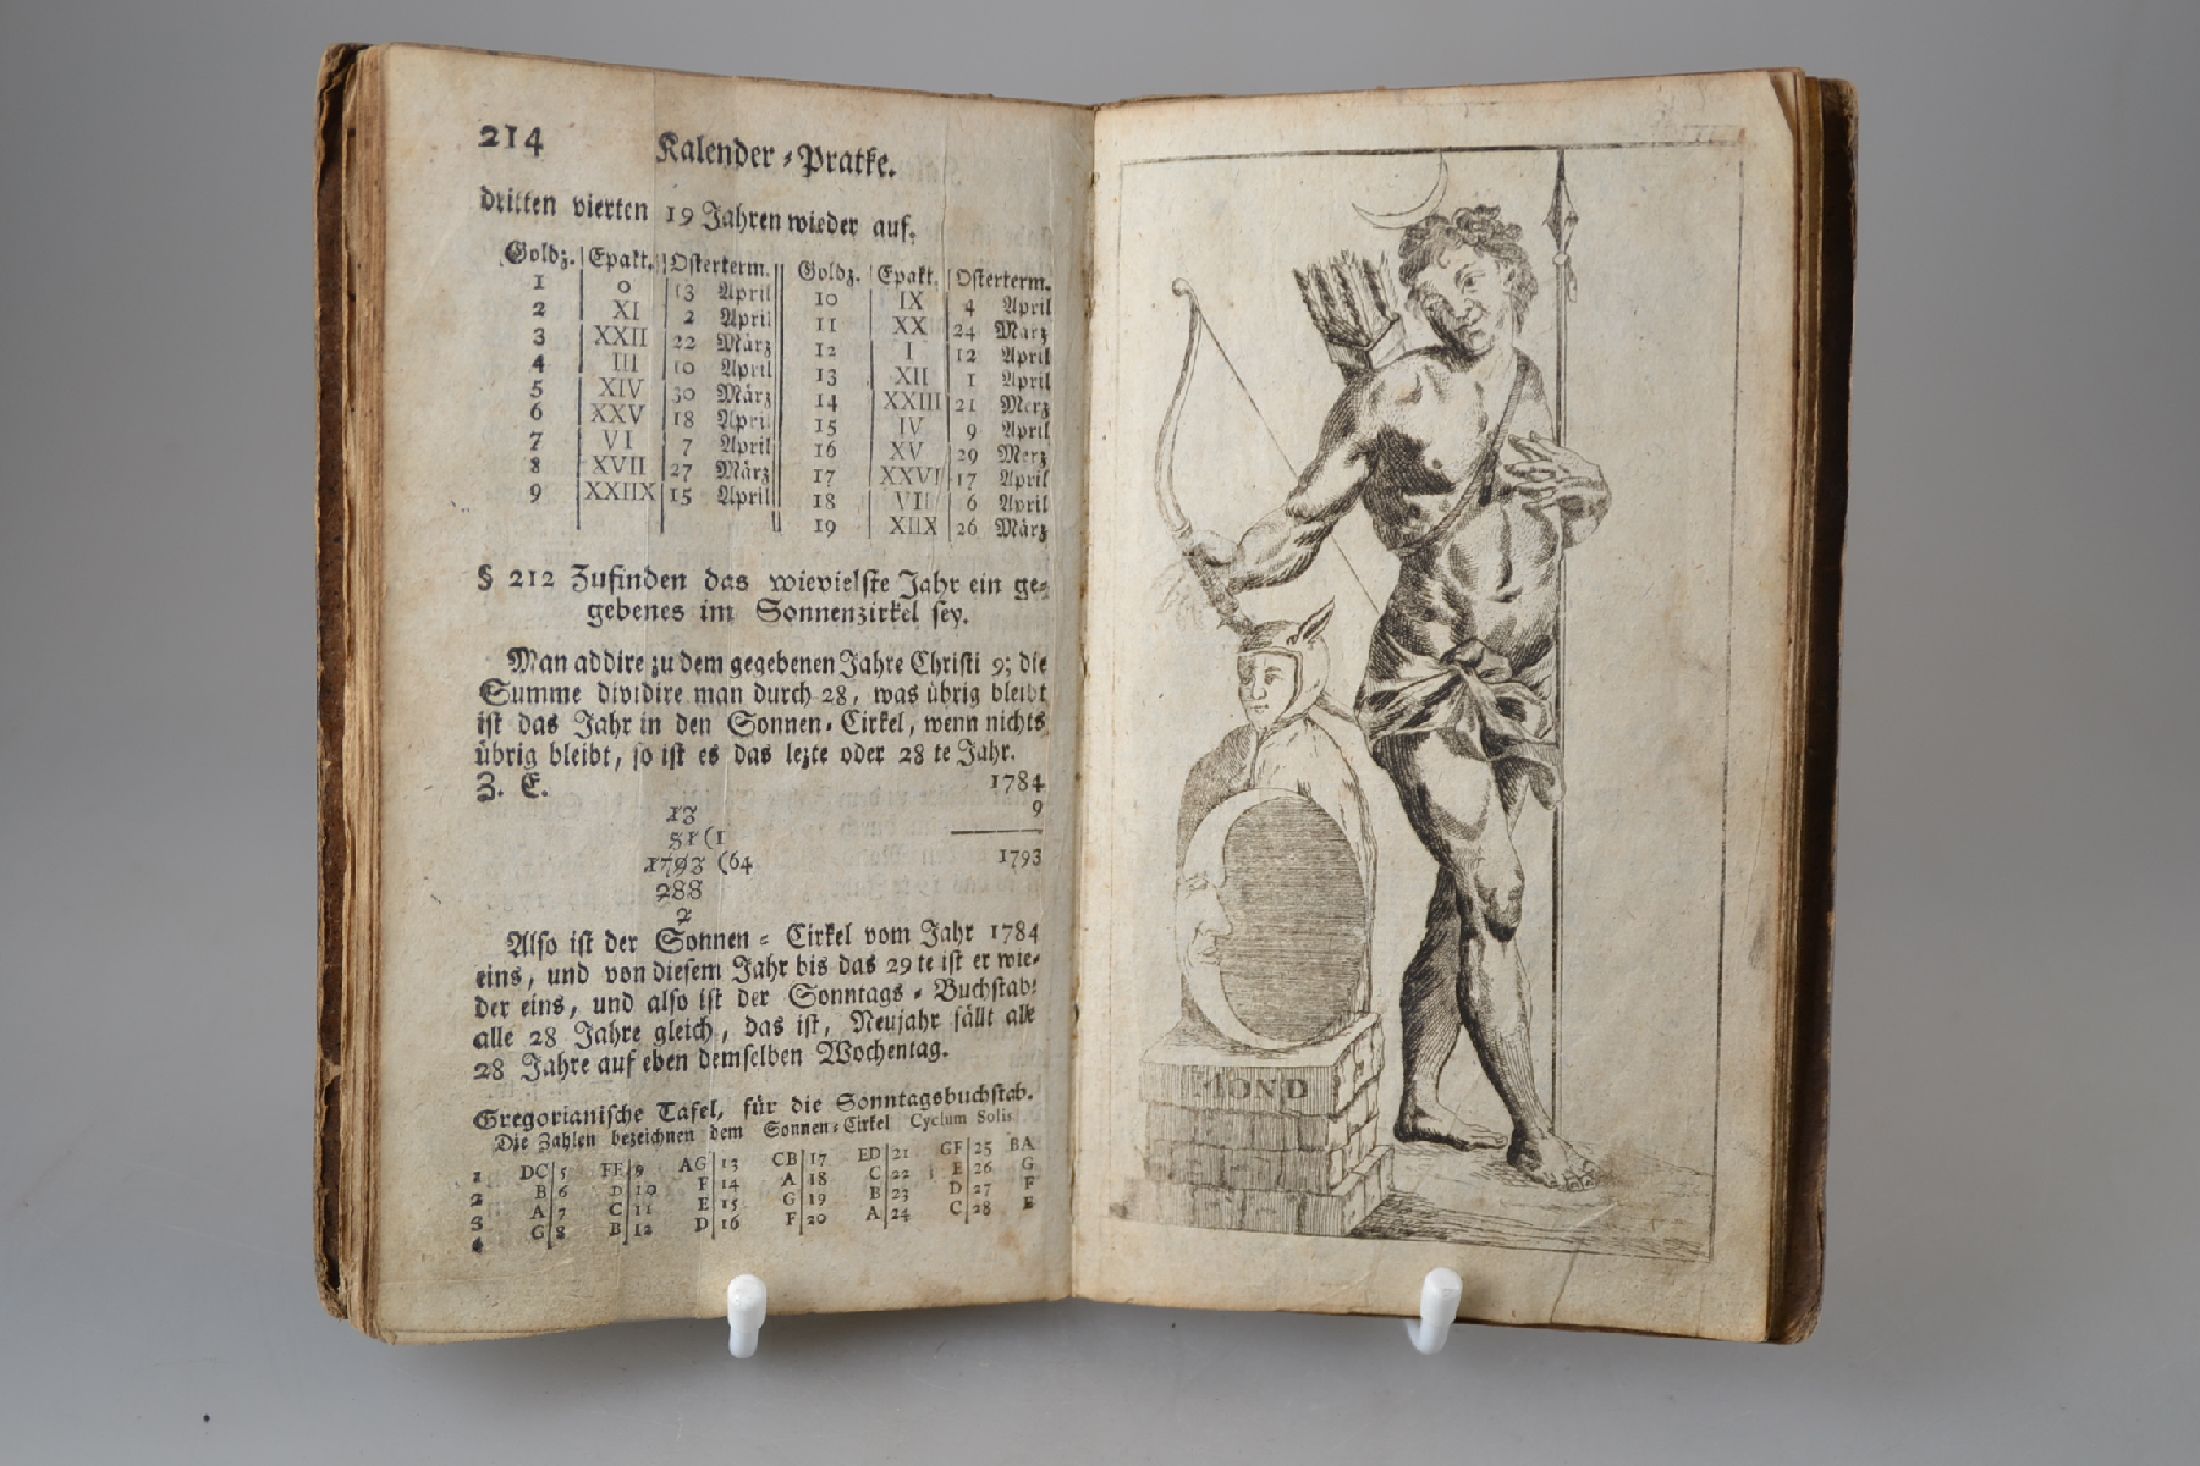 214 Kalender-Pratke.
dritten vierten 19 Jahren wieder auf.
Goldz. | Epakt. | Osterterm. || Goldz. | Epakt. | Osterterm.
1 | 0 | 13 April || 10 | IX | 4 April
2 | XI | 2 April || 11 | XX | 24 März
3 | XXII | 22 März || 12 | I | 12 April
4 | III | 10 April || 13 | XII | 1 April
5 | XIV | 30 März || 14 | XXIII | 21 Merz
6 | XXV | 18 April || 15 | IV | 9 April
7 | VI | 7 April || 16 | XV | 29 Merz
8 | XVII | 27 März || 17 | XXVI | 17 April
9 | XXIIX | 15 April || 18 | VII | 6 April
19 | XIIX | 26 März
§ 212 Zufinden das wievielste Jahr ein ge-
gebenes im Sonnenzirkel sey.
Man addire zu dem gegebenen Jahre Christi 9; die
Summe dividire man durch 28, was übrig bleibt
ist das Jahr in den Sonnen-Cirkel, wenn nichts
übrig bleibt, so ist es das lezte oder 28 te Jahr.
Z. E. 1784
13 9
51(1
1793 (64 1793
288
2
Also ist der Sonnen-Cirkel vom Jahr 1784
eins, und von diesem Jahr bis das 29 te ist er wie-
der eins, und also ist der Sonntags-Buchstab
alle 28 Jahre gleich, das ist, Neujahr fällt alle
28 Jahre auf eben demselben Wochentag.
Gregorianische Tafel, für die Sonntagsbuchstab.
Die Zahlen bezeichnen dem Sonnen-Cirkel Cyclum Solis
1 DC | 5 FE | 9 AG | 13 CB | 17 ED | 21 GF | 25 BA
2 B | 6 D | 10 F | 14 A | 18 C | 22 E | 26 G
3 A | 7 C | 11 E | 15 G | 19 B | 23 D | 27 F
4 G | 8 B | 12 D | 16 F | 20 A | 24 C | 28 E
MOND